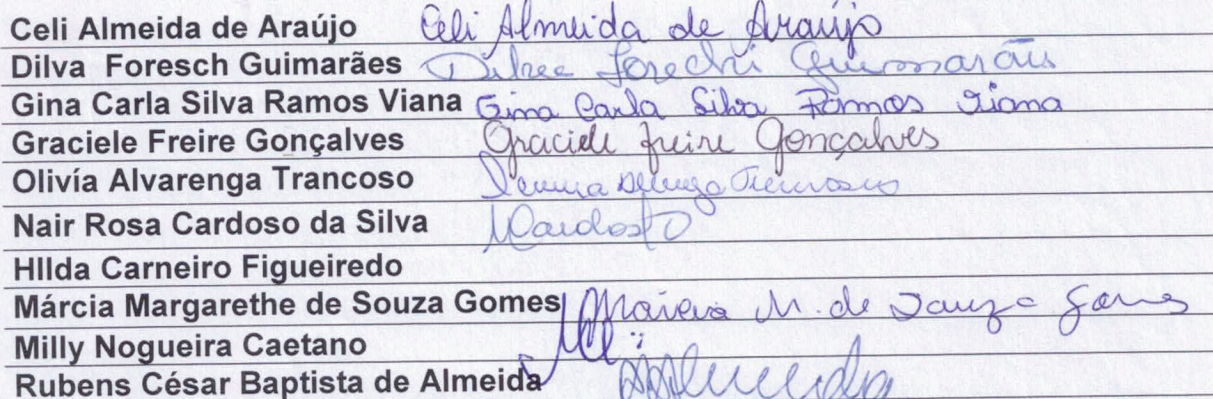 Celi Almeida de Araújo Celi Almeida de Araújo
Dilva Foresch Guimarães Dilva Forechi Guimarães
Gina Carla Silva Ramos Viana Gina Carla Silva Ramos Viana
Graciele Freire Gonçalves Graciele freire Gonçalves
Olivía Alvarenga Trancoso
Nair Rosa Cardoso da Silva NCardoso
HIlda Carneiro Figueiredo
Márcia Margarethe de Souza Gomes Márcia M. de Souza Gomes
Milly Nogueira Caetano
Rubens César Baptista de Almeida Almeida